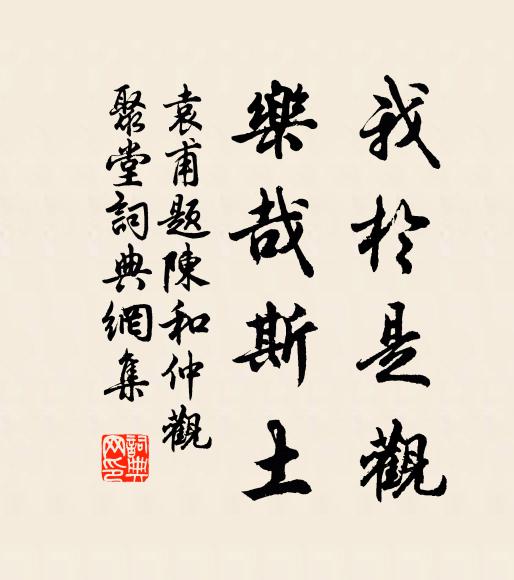 我於是觀
樂哉斯土
袁甫題陳和仲觀
聚堂詞典網集
詞典網印